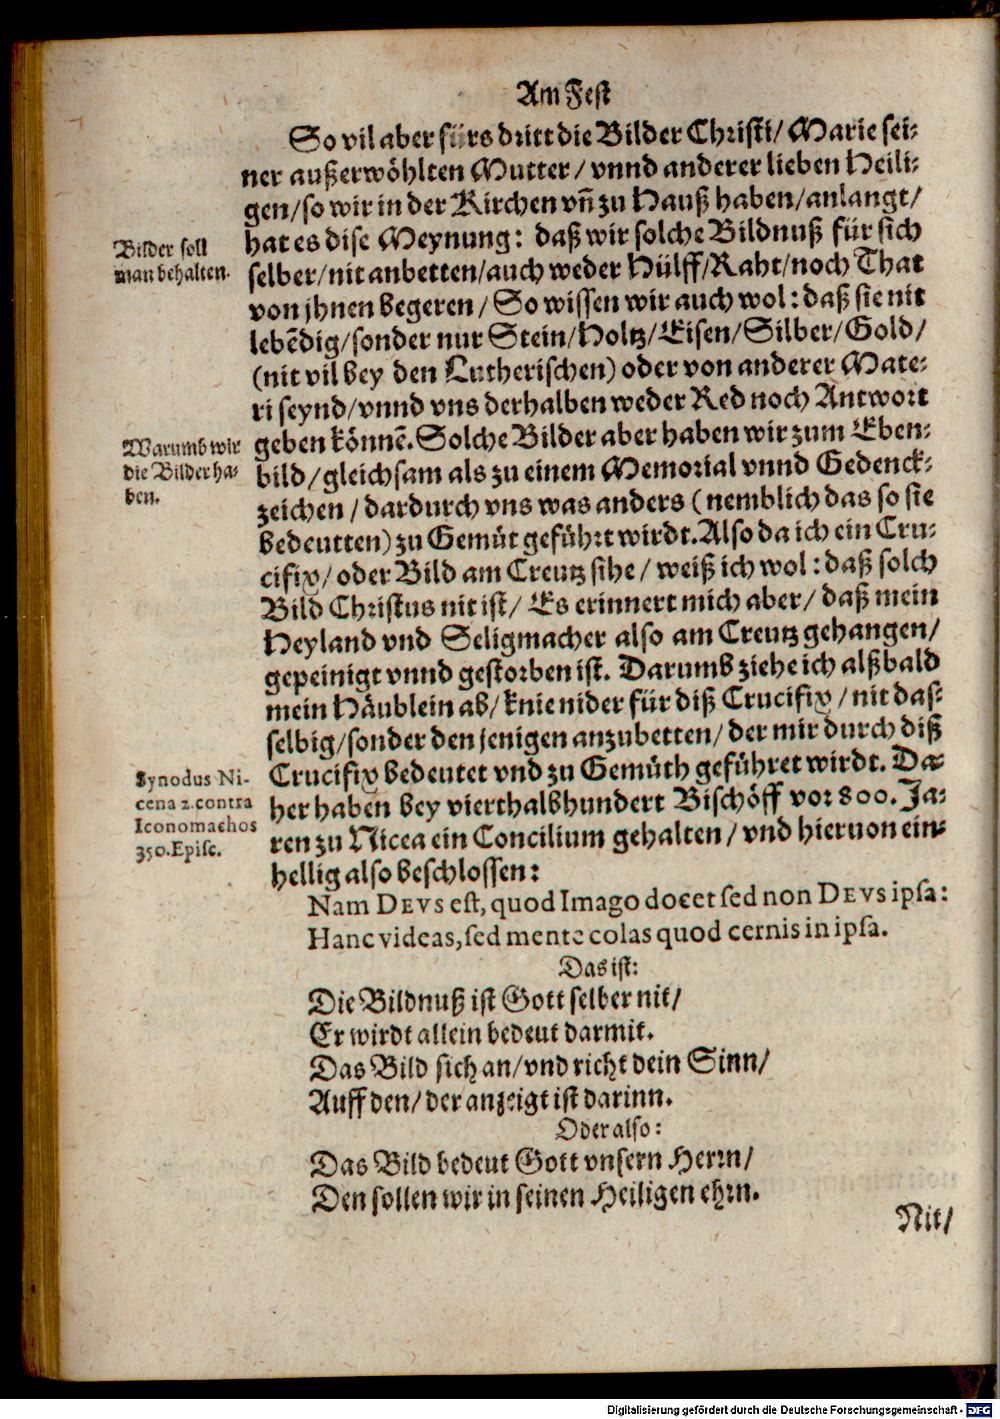 Am Fest
So vil aber fürs dritt die Bilder Christi/ Marie sei-
ner außerwöhlten Mutter/ vnnd anderer lieben Heili-
gen/ so wir in der Kirchen vñ zu Hauß haben/ anlangt/
hat es dise Meynung: daß wir solche Bildnuß für sich
Bilder soll
man behalten.
selber/ nit anbetten/ auch weder Hülff/ Raht/ noch That
von jhnen begeren/ So wissen wir auch wol: daß sie nit
lebẽdig/ sonder nur Stein/ Holtz/ Eisen/ Silber/ Gold/
(nit vil bey den Lutherischen) oder von anderer Mate-
ri seynd/ vnnd vns derhalben weder Red noch Antwort
geben könnẽ. Solche Bilder aber haben wir zum Eben-
Warumb wir
die Bilder ha-
ben.
bild/ gleichsam als zu einem Memorial vnnd Gedenck-
zeichen/ dardurch vns was anders (nemblich das so sie
bedeutten) zu Gemüt geführt wirdt. Also da ich ein Cru-
cifix/ oder Bild am Creutz sihe/ weiß ich wol: daß solch
Bild Christus nit ist/ Es erinnert mich aber/ daß mein
Heyland vnd Seligmacher also am Creutz gehangen/
gepeinigt vnnd gestorben ist. Darumb ziehe ich alßbald
mein Häublein ab/ knie nider für diß Crucifix/ nit das-
selbig/ sonder den jenigen anzubetten/ der mir durch diß
Crucifix bedeutet vnd zu Gemüth geführet wirdt. Da-
Synodus Ni-
cena 2. contra
Iconomachos
350. Episc.
her haben bey vierthalbhundert Bischöff vor 800. Ja-
ren zu Nicea ein Concilium gehalten/ vnd hieruon ein-
hellig also beschlossen:
Nam DEVS est, quod Imago docet sed non DEVS ipsa:
Hanc videas, sed mente colas quod cernis in ipsa.
Das ist:
Die Bildnuß ist Gott selber nit/
Er wirdt allein bedeut darmit.
Das Bild sich an/ vnd richt dein Sinn/
Auff den/ der anzeigt ist darinn.
Oder also:
Das Bild bedeut Gott vnsern Herrn/
Den sollen wir in seinen Heiligen ehrn.
Nit/
Digitalisierung gefördert durch die Deutsche Forschungsgemeinschaft - DFG